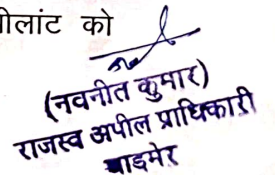 ीलांट को
(नवनीत कुमार)
राजस्व अपील प्राधिकारी
बाड़मेर